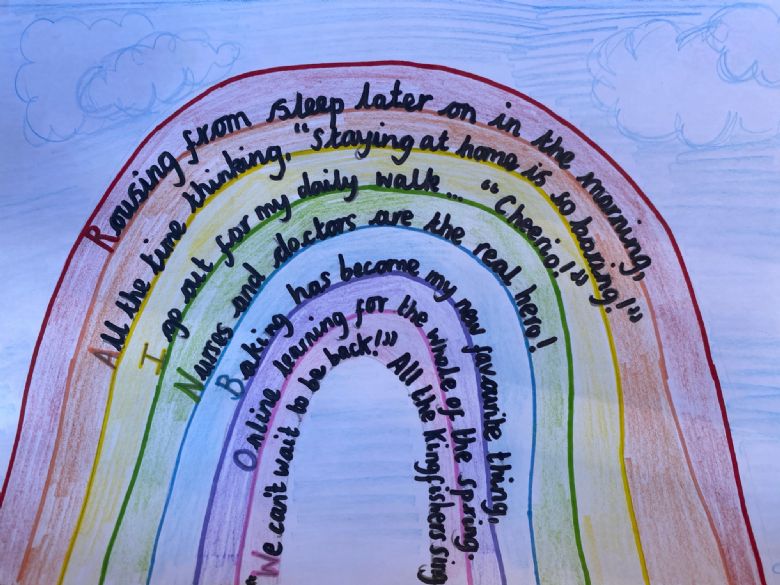 Rousing from sleep later on in the morning,
All the time thinking, "Staying at home is so boring!"
I go out for my daily walk... "Cheerio!"
Nurses and doctors are the real hero!
Baking has become my new favourite thing,
Online learning for the whole of the spring.
"We can't wait to be back!" All the Kingfishers sing